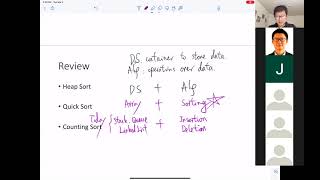 DS: container to store data.
Alg: operations over data.
Review
• Heap Sort
DS + Alg
• Quick Sort
Array + Sorting
• Counting Sort
Today
Stack, Queue + Insertion
Linked List Deletion
J